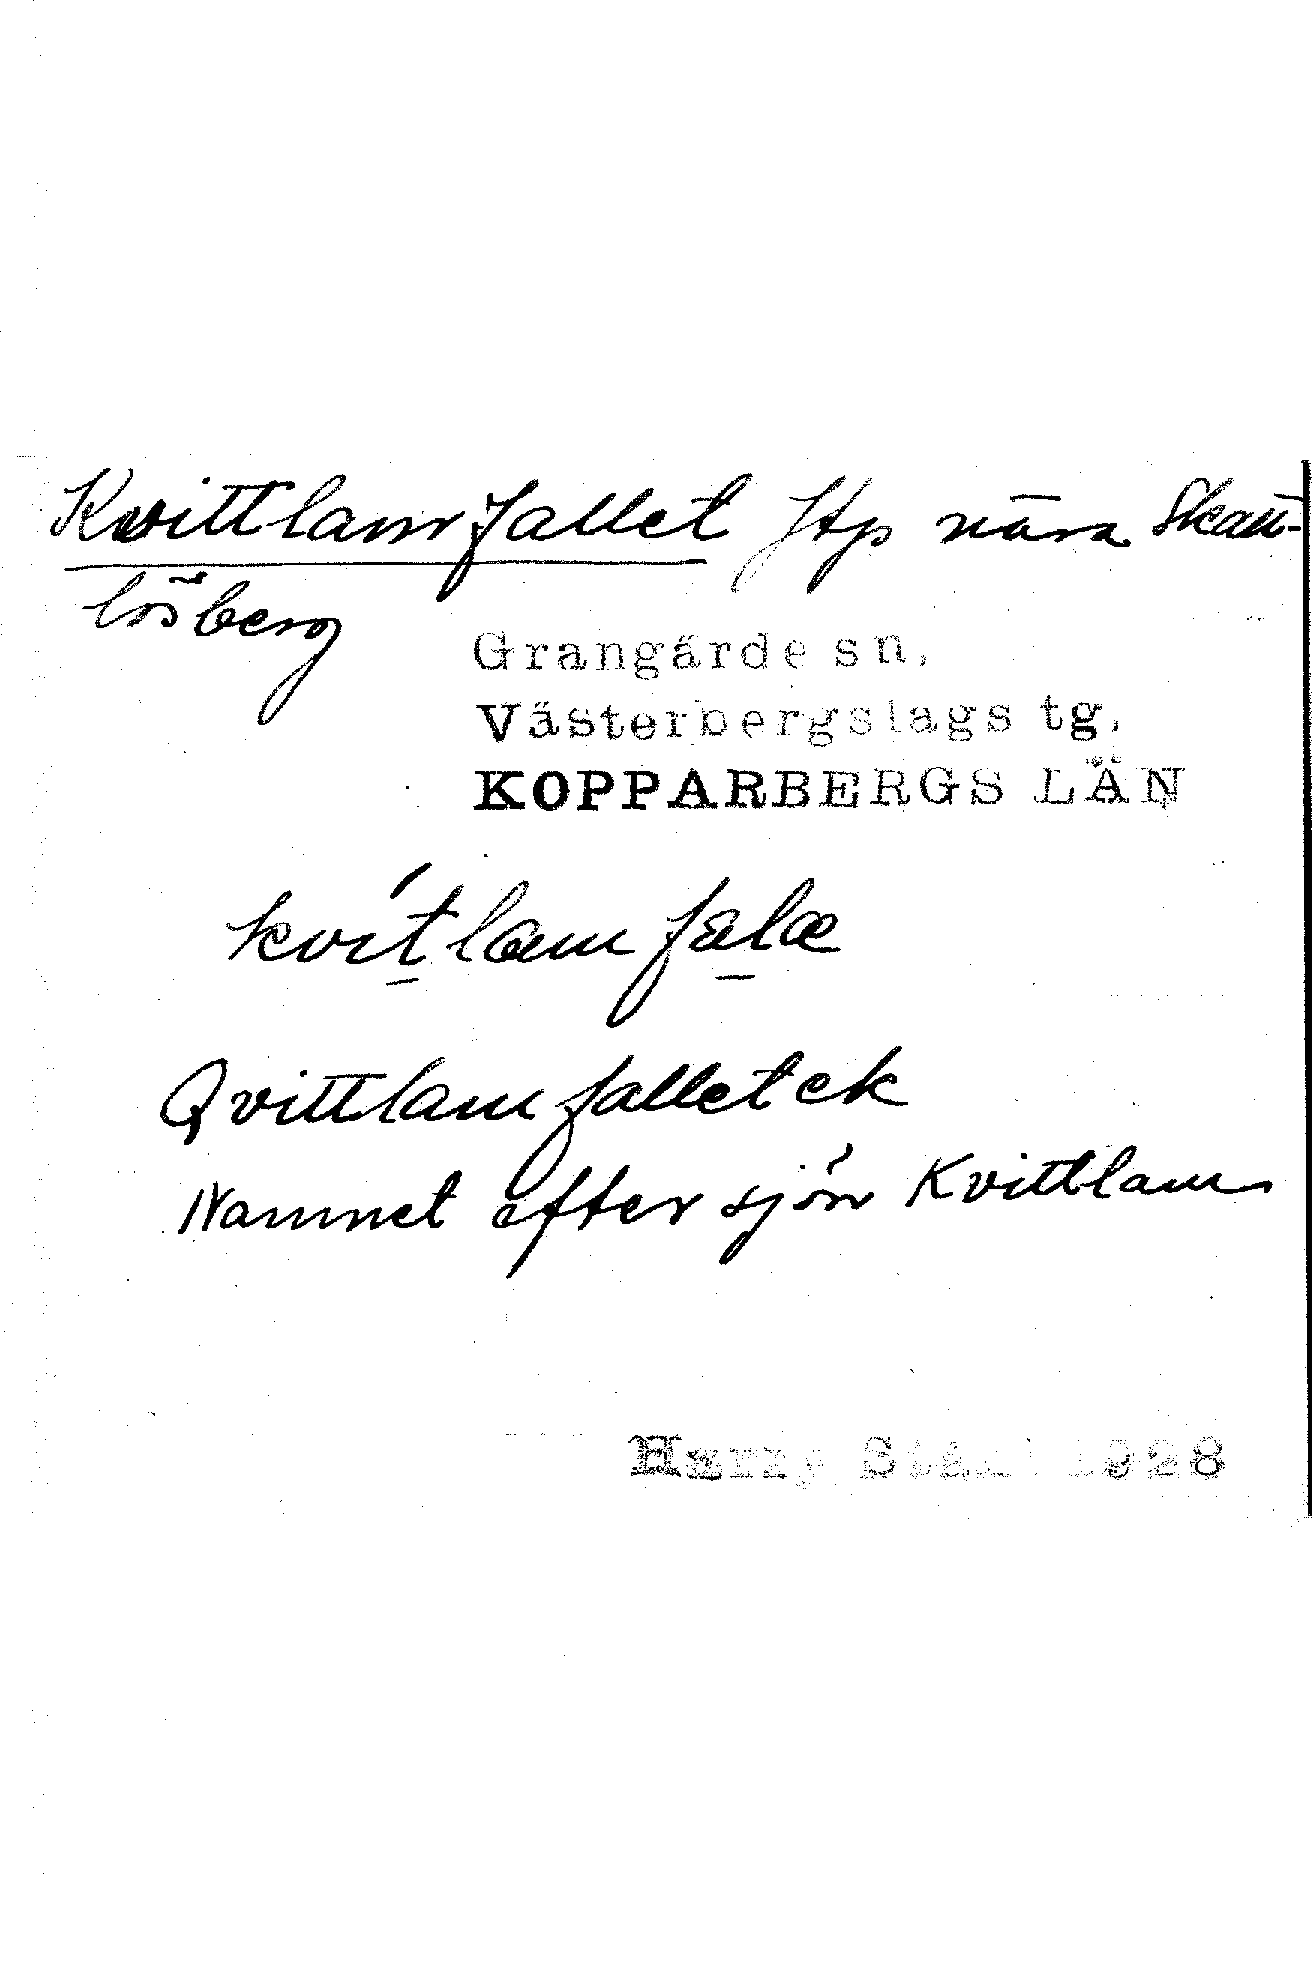 Kvittlamfallet ftp nära Skatt-
lösberg
Grangärde sn.
Västerbergslags tg.
KOPPARBERGS LÄN
kvítlamfalæ
Qvittlamfallet ek
Namnet efter sjön Kvittlam
Harry Ståhl 1928